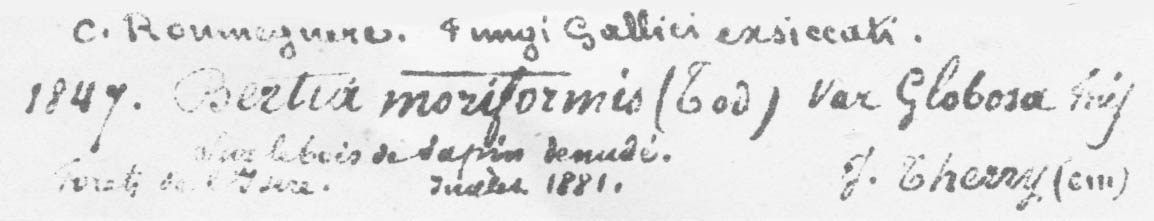 C. Roumeguere. Fungi Gallici exsiccati.
1847. Bertia moriformis (Tod) Var Globosa
Sur le bois de sapin denudé.
Forets de l'Isere. Juillet 1881. J. Therry (em)